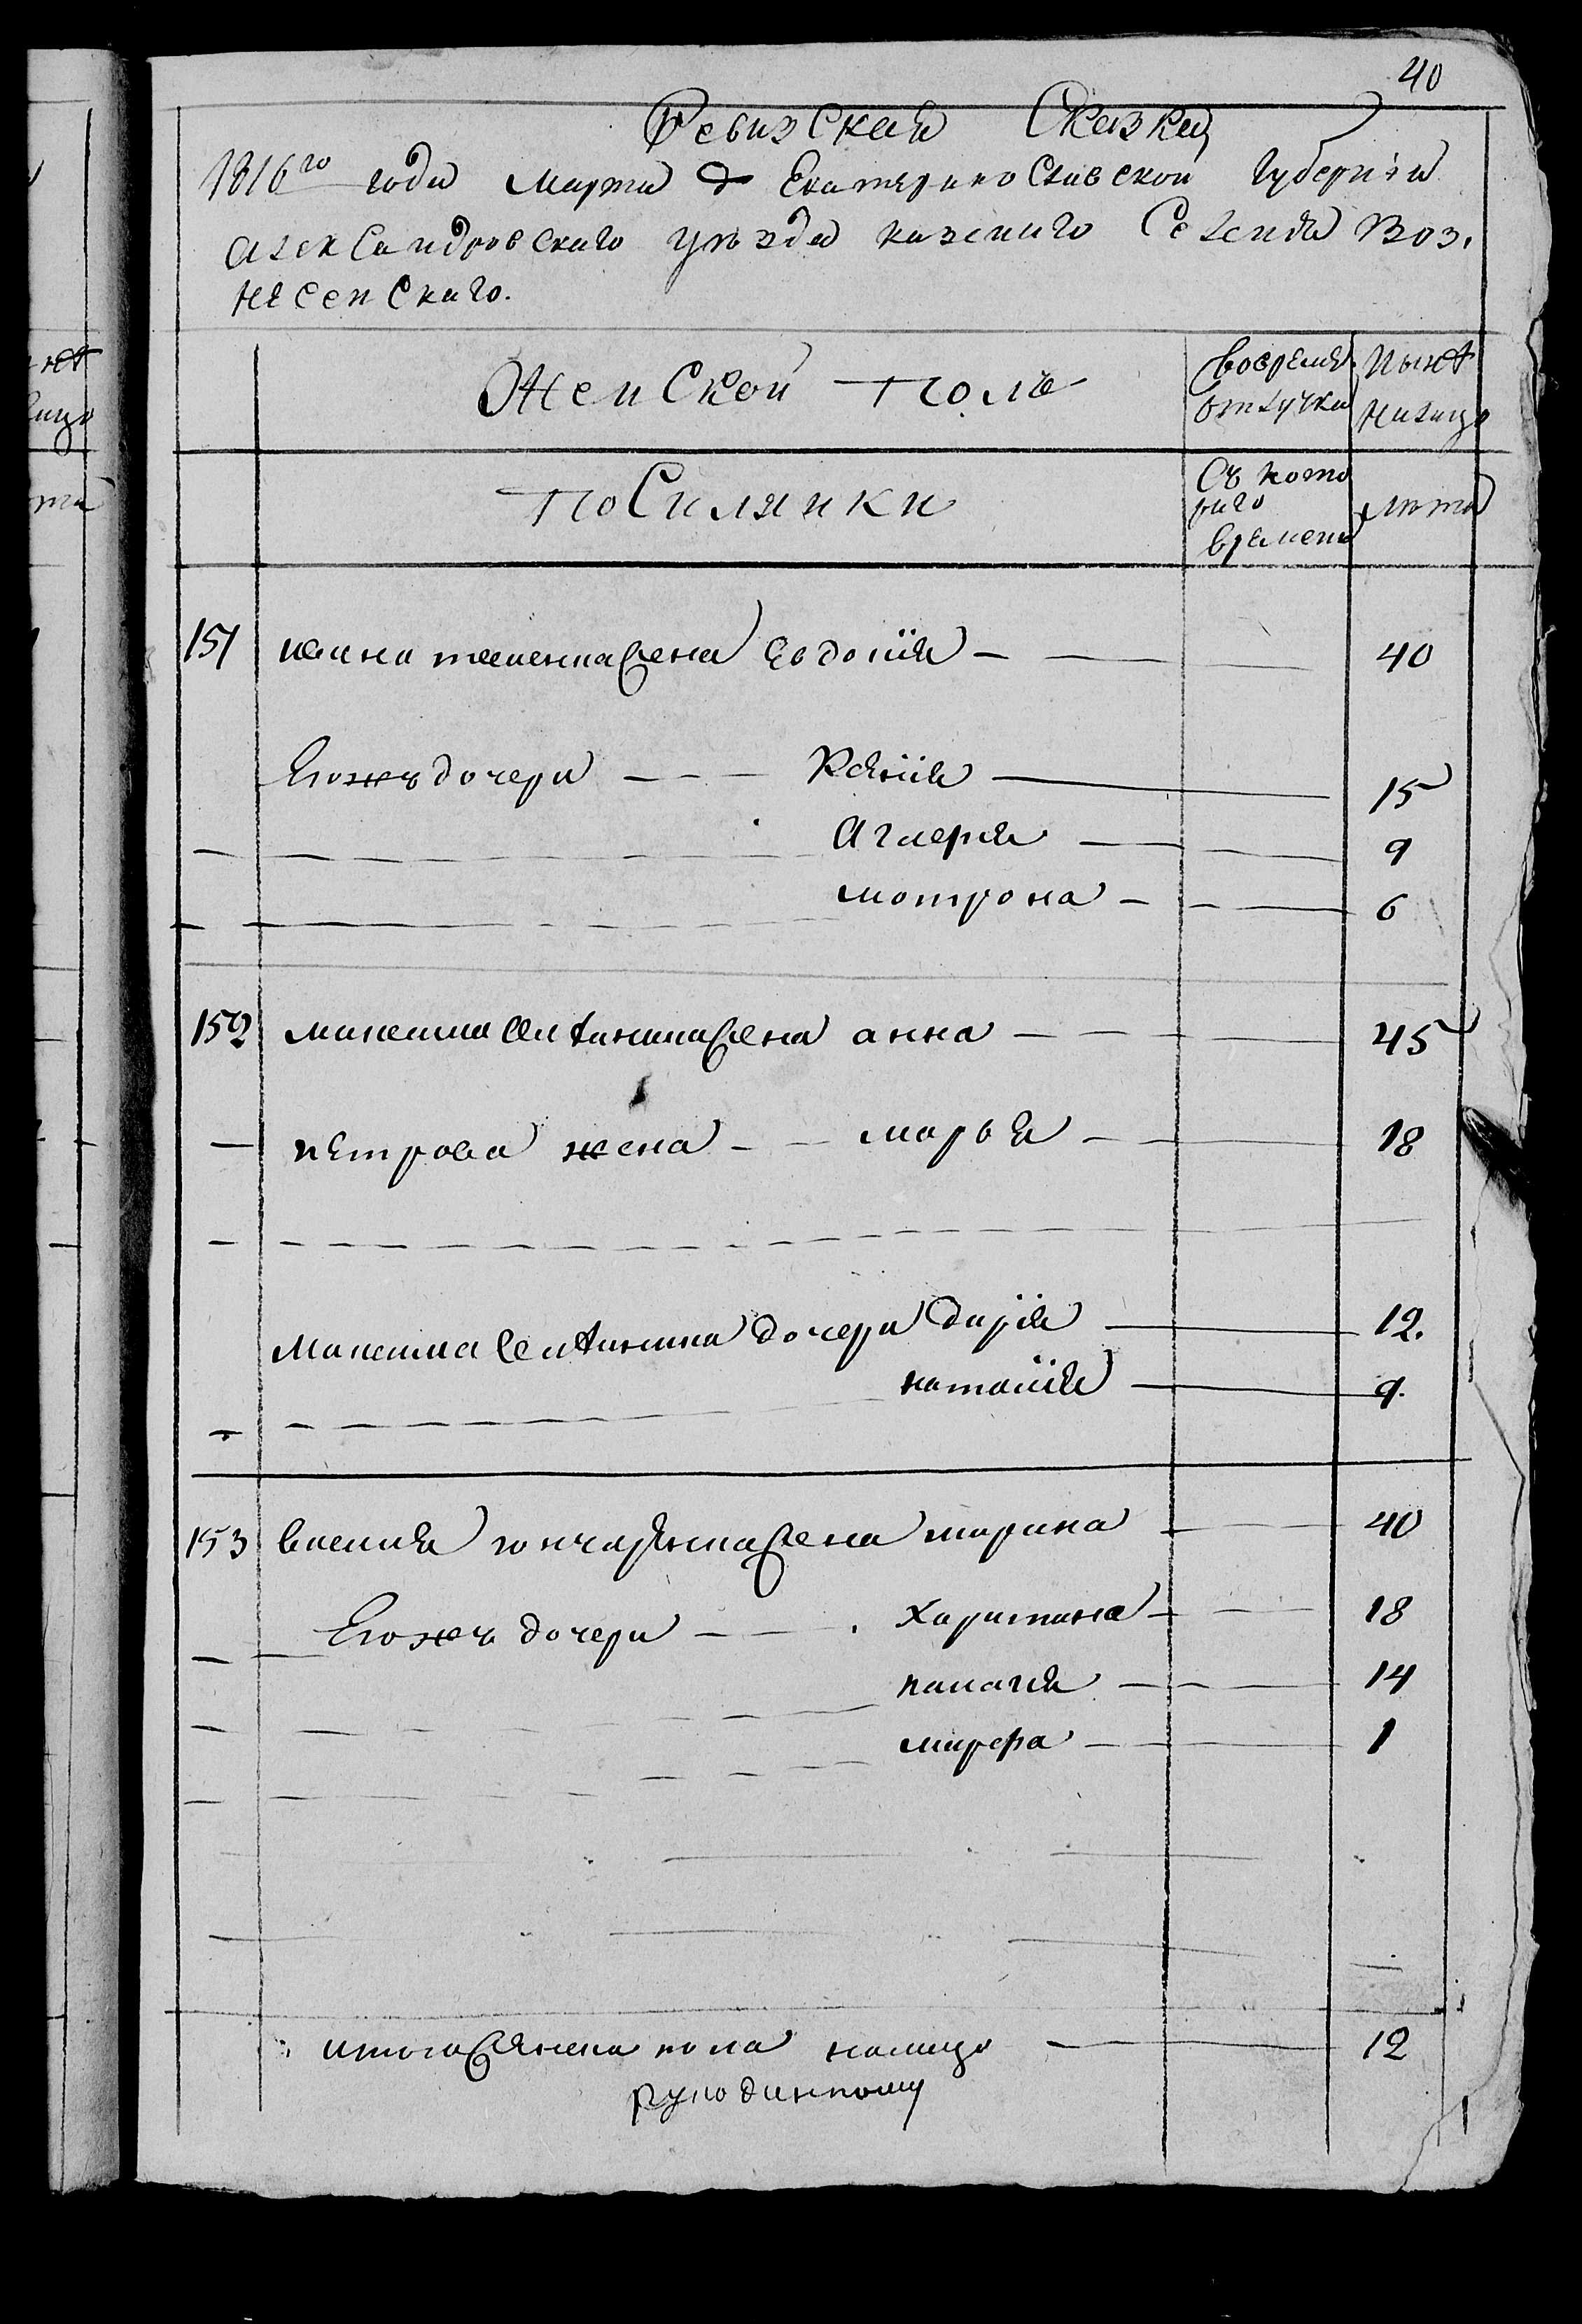 40
Ревизская Сказка
1816го года Марта Екатеринославской Губернии
Александровского уѣзда казенного Селения Воз,
несенского.
Женской Полъ
Вовремя отлучки
Нынѣ налицо
Поселянки
Съ которого времени
лѣта
151 ивана жена Евдокія 40
Егожъ дочери Ксенія 15
Агаерия 9
мотрона 6
152 максима жена анна 45
петрова жена марья 18
Максима дочери Дарія 12.
наталія 9.
153 василия гончаренка жена марина 40
Егожъ дочери Харитина 18
палагия 14
марфа 1
итого женска пола налицо 12